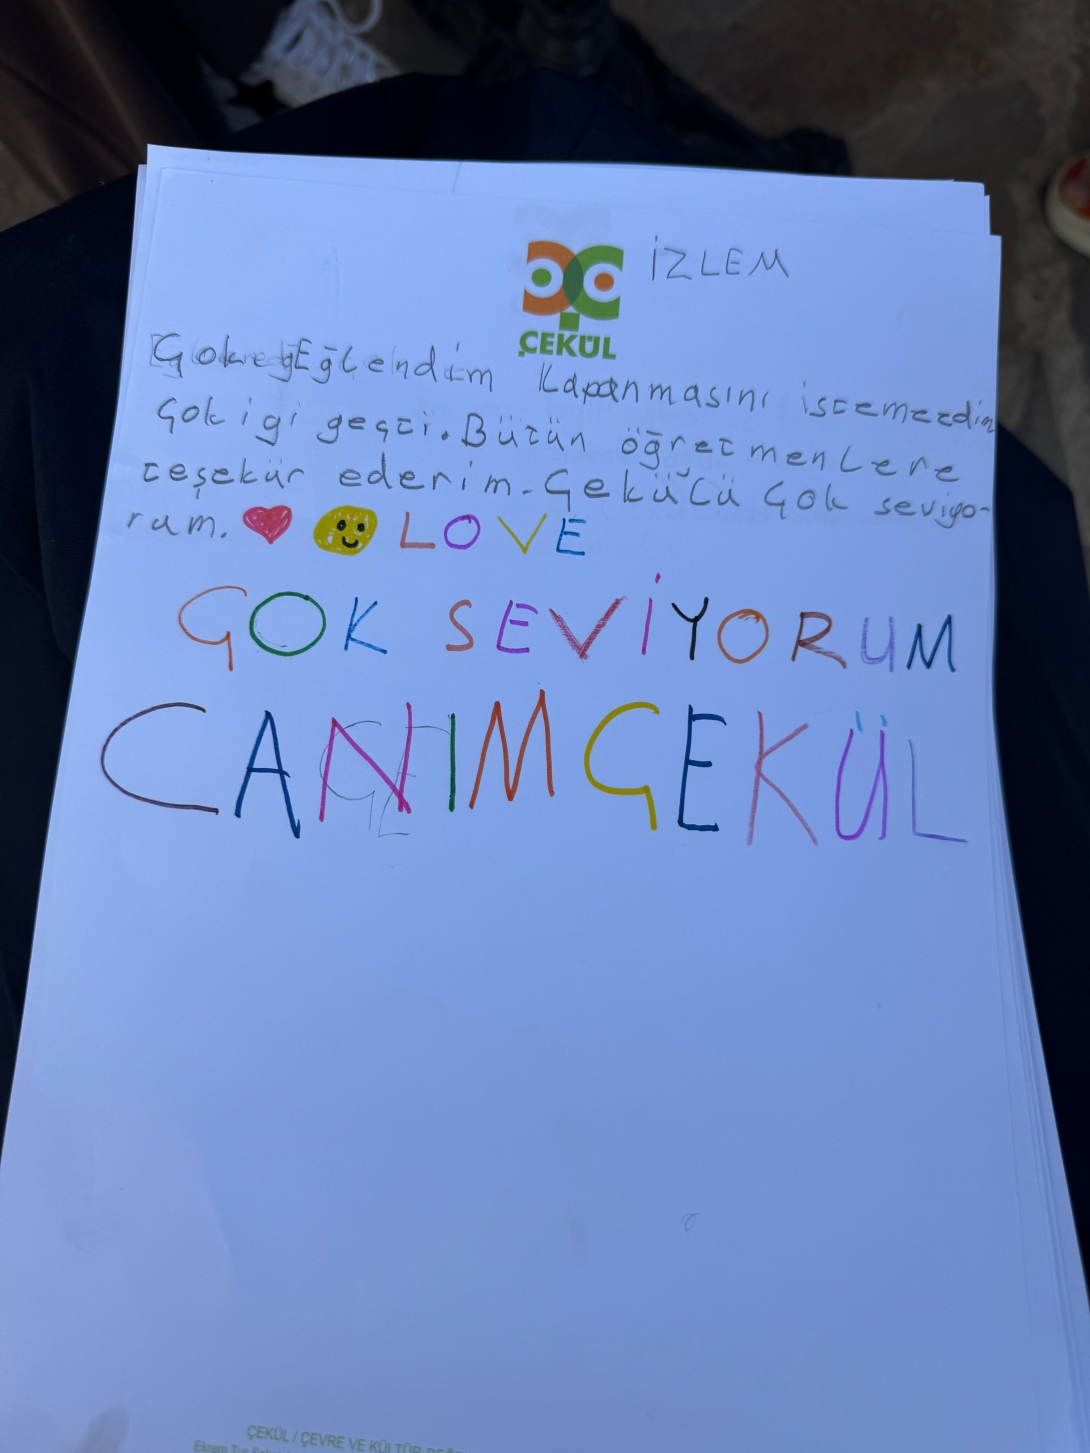 İZLEM
ÇEKÜL
Çok Eğlendim Kapanmasını istemezdim
çok igi geçti. Bütün öğretmenlere
teşekür ederim. Çekülü çok seviyo-
rum. LOVE
ÇOK SEVİYORUM
CANIM ÇEKÜL
ÇEKÜL / ÇEVRE VE KÜLTÜR
Ekrem Tur